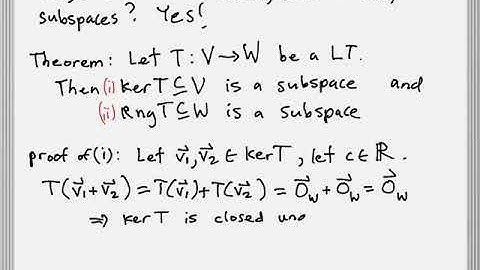 subspaces? Yes!
Theorem: Let T: V→W be a LT.
Then (i) Ker T ⊆ V is a subspace and
(ii) Rng T ⊆ W is a subspace
proof of (i): Let v⃗₁, v⃗₂ ∈ ker T, let c ∈ ℝ.
T(v⃗₁+v⃗₂) = T(v⃗₁)+T(v⃗₂) = 0⃗_W + 0⃗_W = 0⃗_W
⇒ ker T is closed und